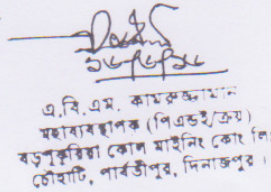 ১৮/৮/১৮
এ,বি,এম, কামরুজ্জামান
মহাব্যবস্থাপক (পিএন্ডই/ক্রয়)
বড়পুকুরিয়া কোল মাইনিং কোং লি:
চৌহাটি, পার্বতীপুর, দিনাজপুর।